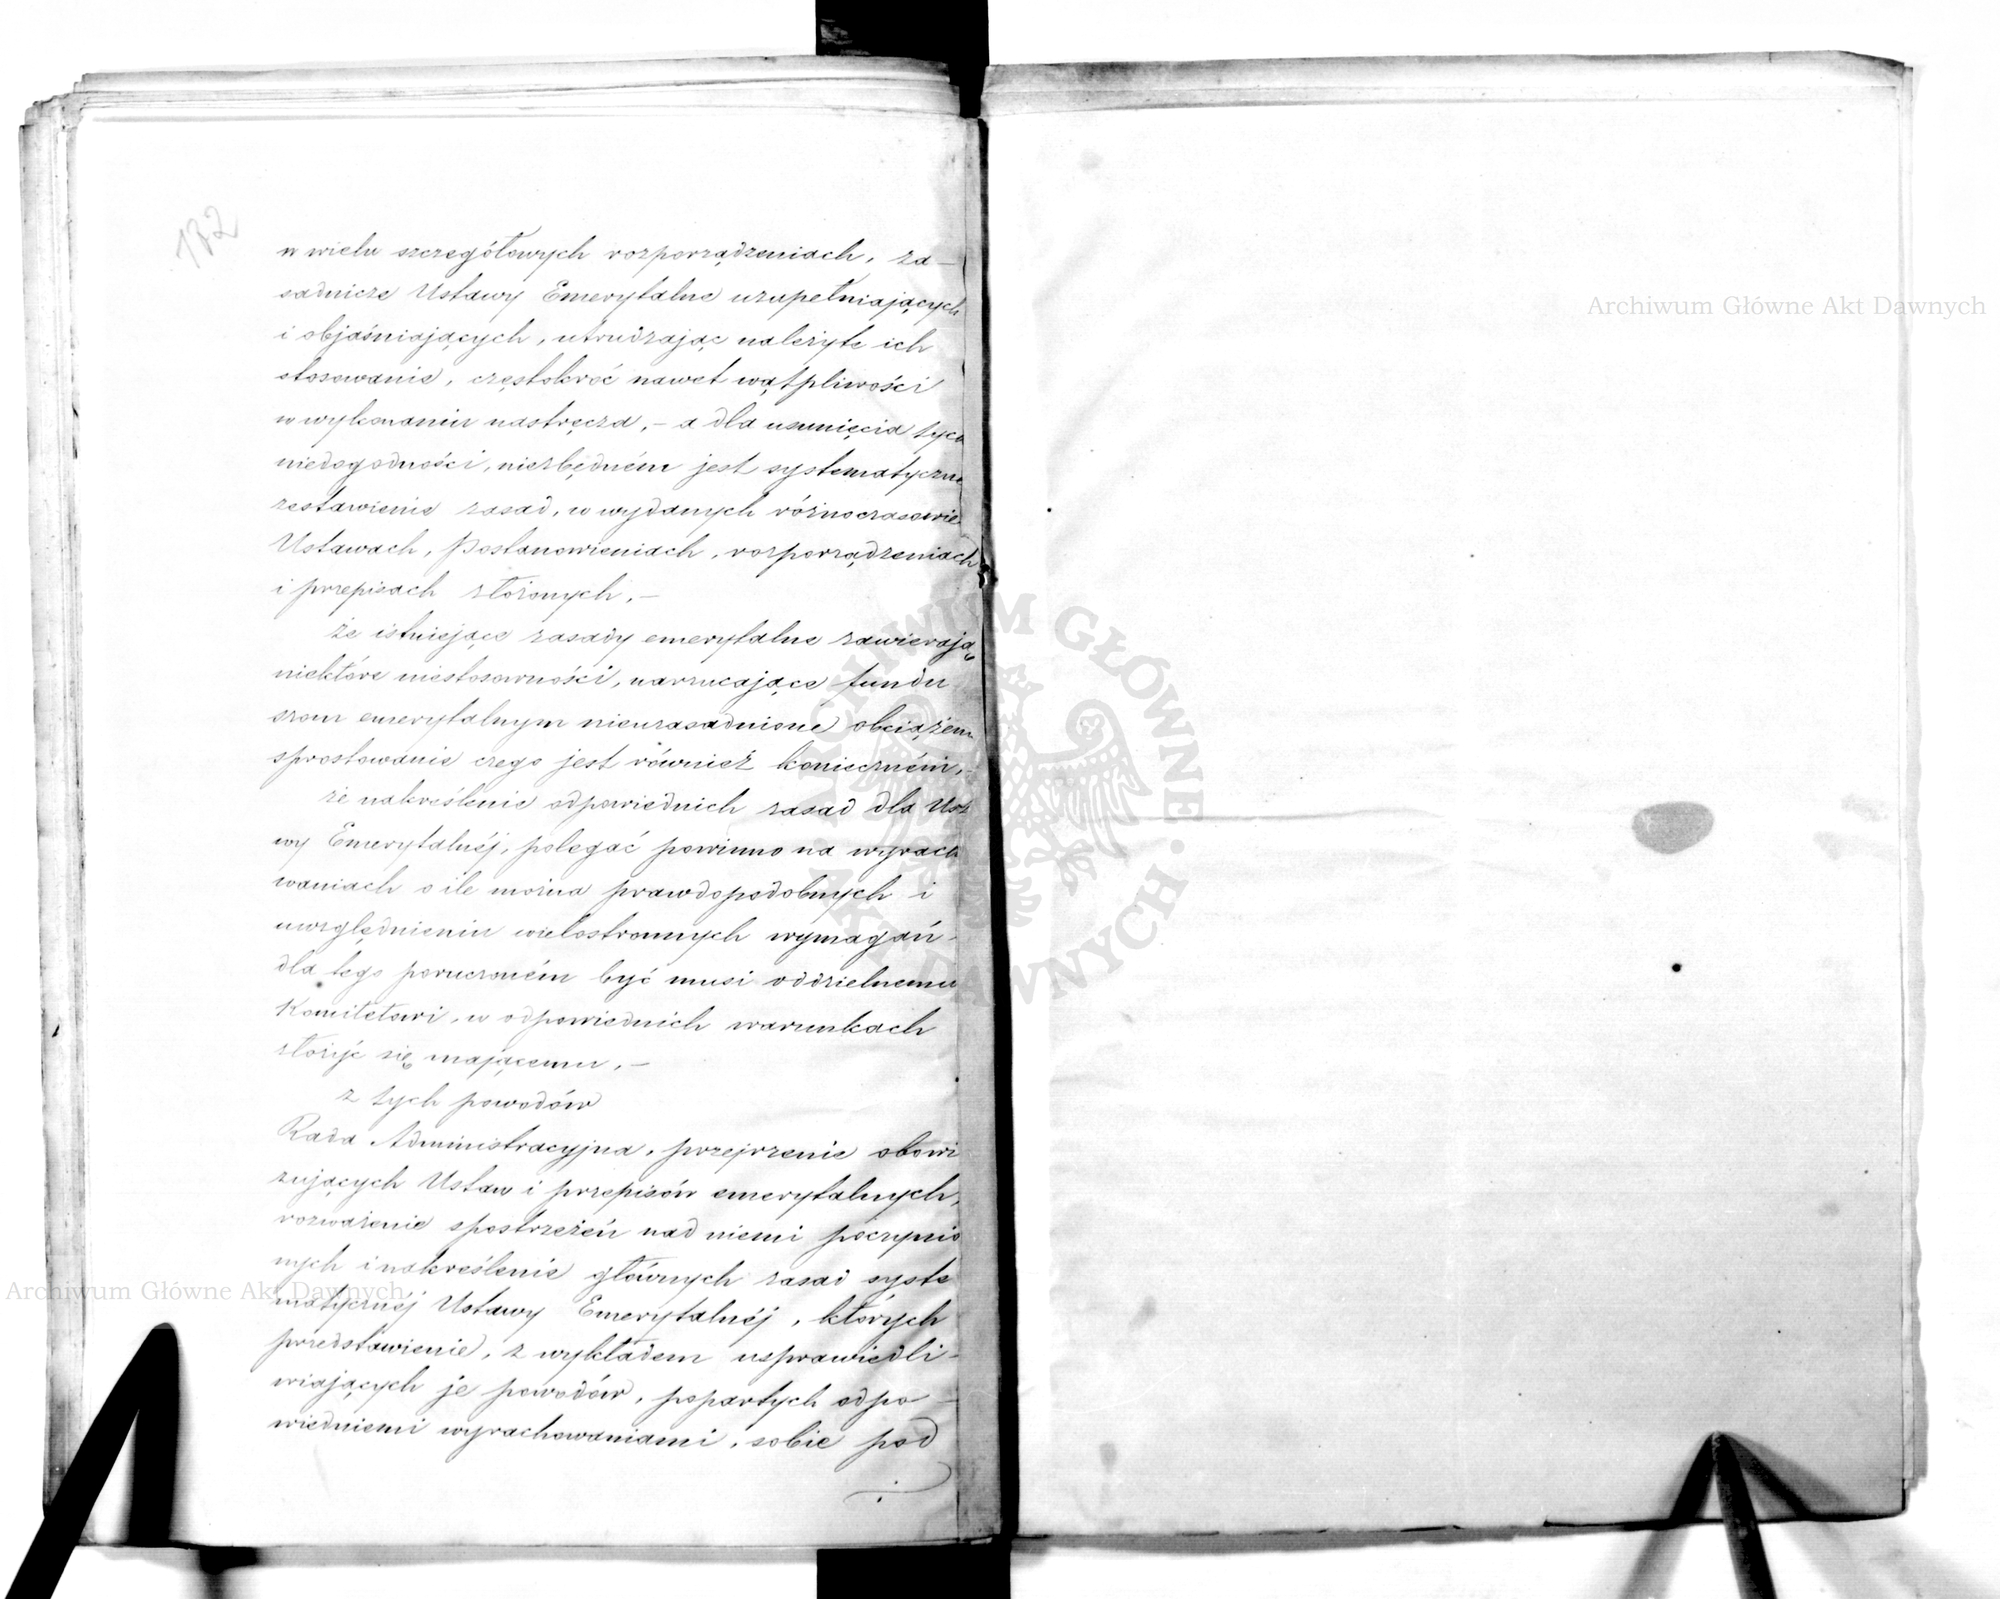 182
w wielu szczegółowych rozporządzeniach, za-
sadnicze Ustawy Emerytalne uzupełniających
i objaśniających, utrudzając należyte ich
stosowanie, częstokroć nawet wątpliwości
w wykonaniu nastręcza, – a dla usunięcia tych
niedogodności, niezbędném jest systematyczne
zestawienie zasad, w wydanych różnoczasowie
Ustawach, Postanowieniach, rozporządzeniach
i przepisach złożonych, –
że istniejące zasady emerytalne zawierają
niektóre niestosowności, narzucające fundu
szom emerytalnym nieuzasadnione obciążen
sprostowanie czego jest również konieczném, –
że nakreślenie odpowiednich zasad dla Usta
wy Emerytalnéj, polegać powinno na wyracho
waniach o ile można prawdopodobnych i
uwzględnieniu wielostronnych wymagań –
dla tego poruczoném być musi oddzielnemu
Komitetowi, w odpowiednich warunkach
złożyć się mającemu, –
z tych powodów
Rada Administracyjna, przejrzenie obowi
zujących Ustaw i przepisów emerytalnych,
rozważenie spostrzeżeń nad niemi poczynio
nych i nakreślenie głównych zasad syste
matycznéj Ustawy Emerytalnéj, których
przedstawienie, z wykładem usprawiedli-
wiających je powodów, popartych odpo –
wiedniemi wyrachowaniami, sobie pod
Archiwum Główne Akt Dawnych
Archiwum Główne Akt Dawnych
ARCHIWUM GŁÓWNE AKT DAWNYCH